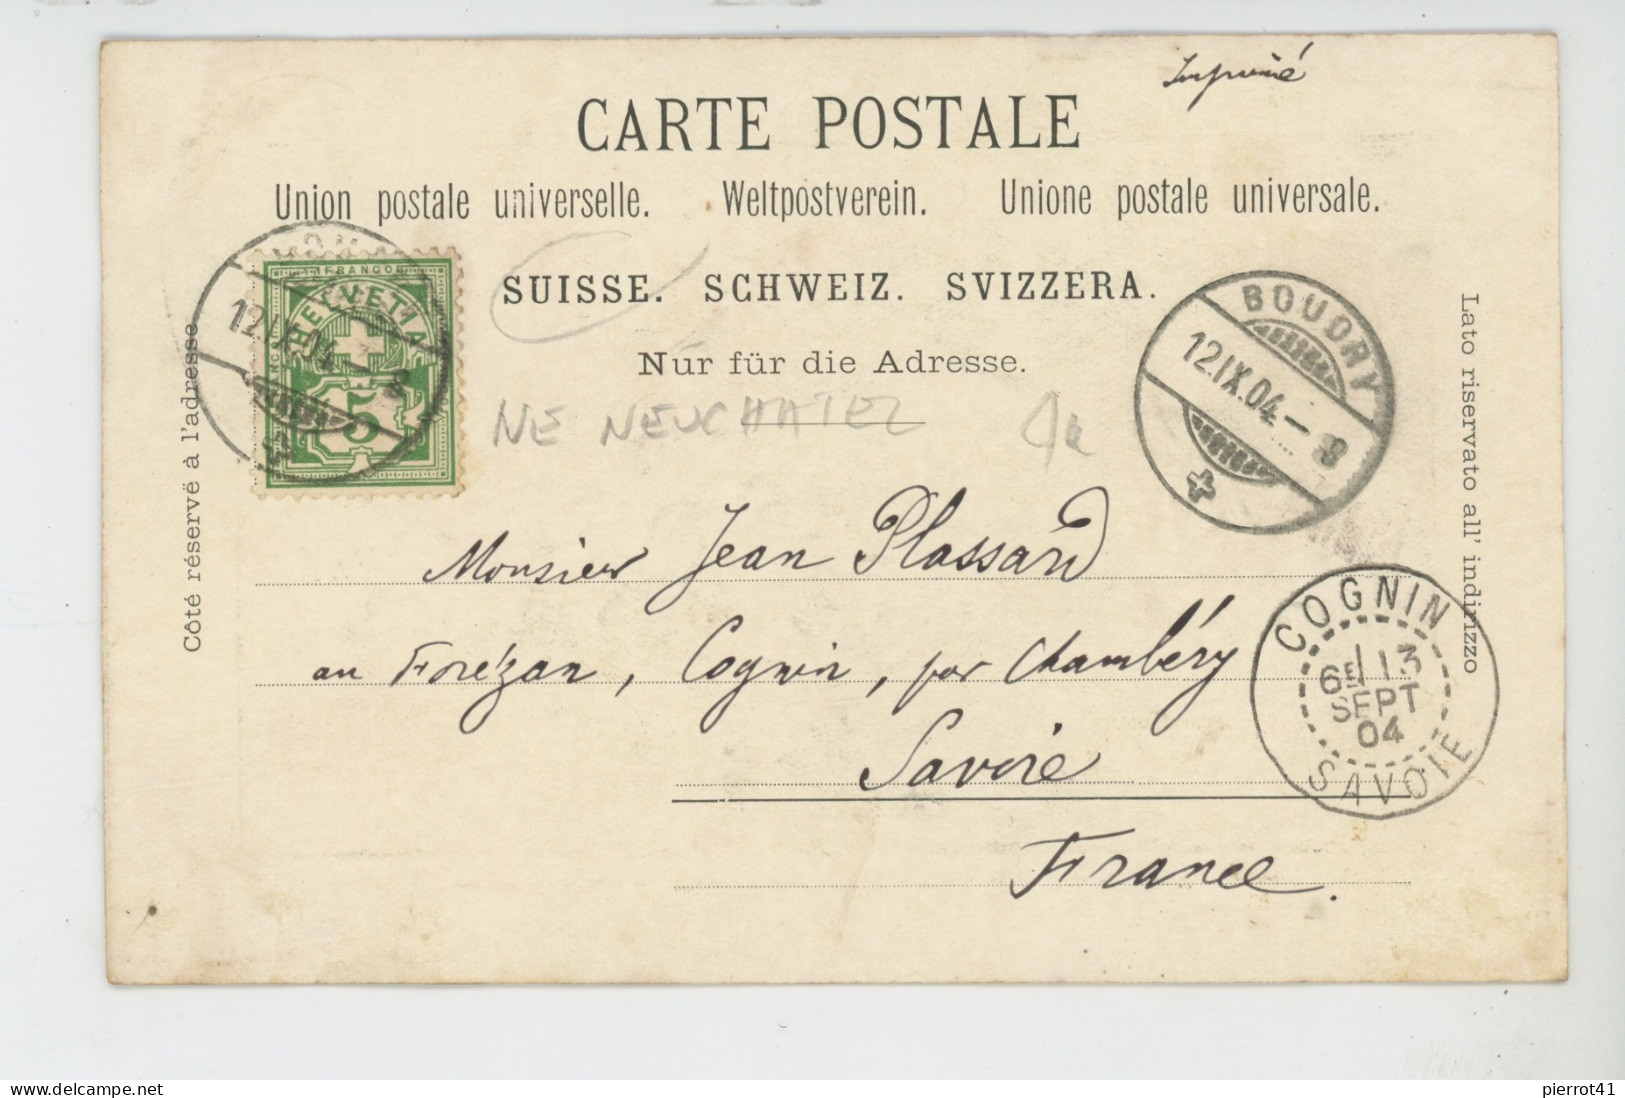 Imprimé
CARTE POSTALE
Union postale universelle. Weltpostverein. Unione postale universale.
SUISSE. SCHWEIZ. SVIZZERA.
Nur für die Adresse.
Côté réservé à l'adresse
Lato riservato all' indirizzo
FRANCO
HELVETIA
5
12.IX.04 - 8
BOUDRY
12.IX.04 - 8
NE NEUCHATEL
Monsieur Jean Plassard
au Forézan, Cognin, par Chambéry
Savoie
France.
COGNIN
13
SEPT
04
SAVOIE
pierrot41